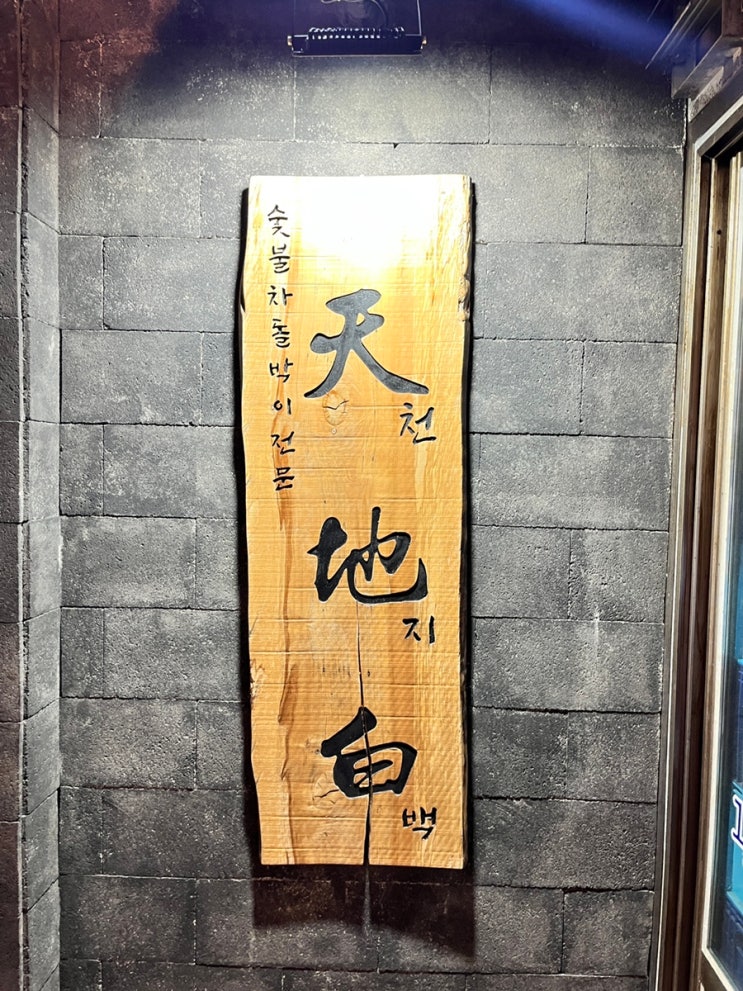 숯불차돌박이전문
天地白
천지백